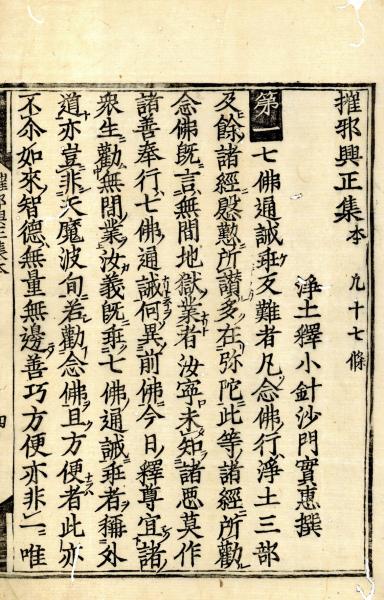 摧邪興正集本 九十七條
淨土釋小針沙門實惠撰
第一 七佛通誡乖反難者凡念佛行淨土三部
及餘諸經慇懃所讃多在弥陀此等諸經所勸
念佛既言無間地獄業者汝寧未知諸悪莫作
諸善奉行七佛通誡何異前佛今日釋尊宜諸
衆生勸無間業汝義既乖七佛通誡乖者稱外
道亦豈非天魔波旬若勸念佛且方便者此亦
不尒如來智德無量無邊善巧方便亦非一唯